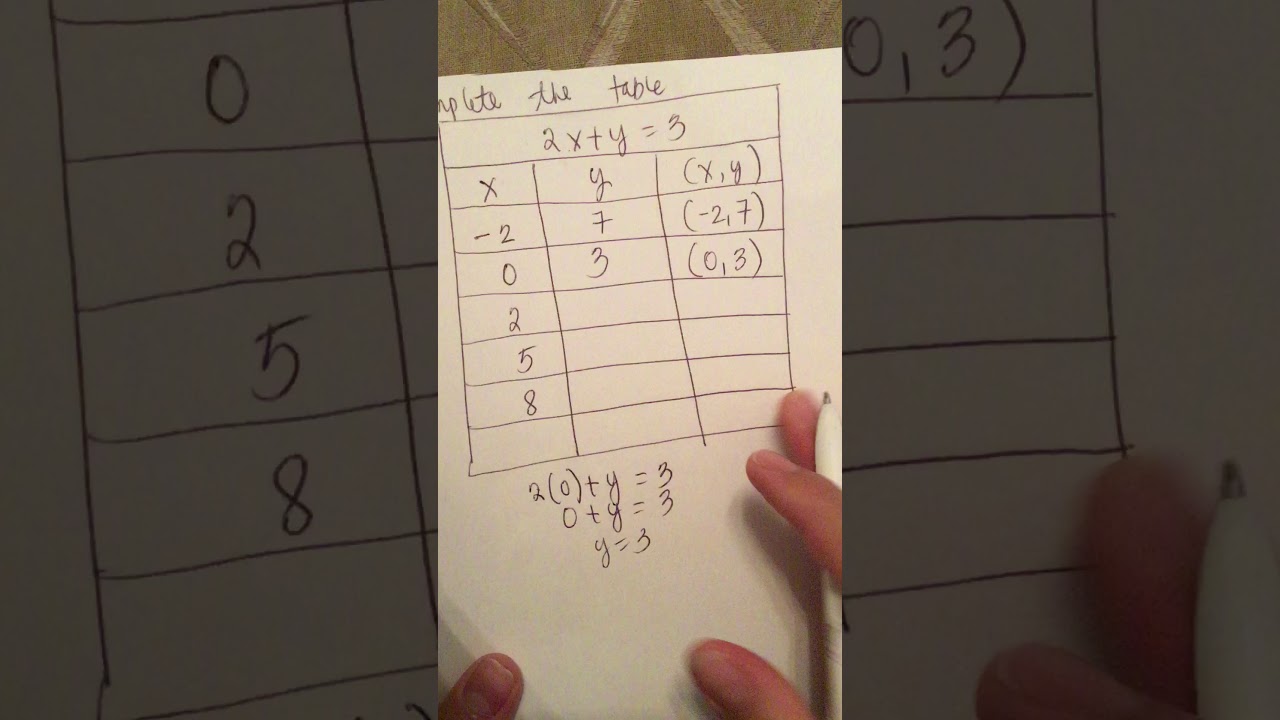 the table
2x+y=3
x y (x,y)
-2 7 (-2,7)
0 3 (0,3)
2
5
8
2(0)+y=3
0+y=3
y=3